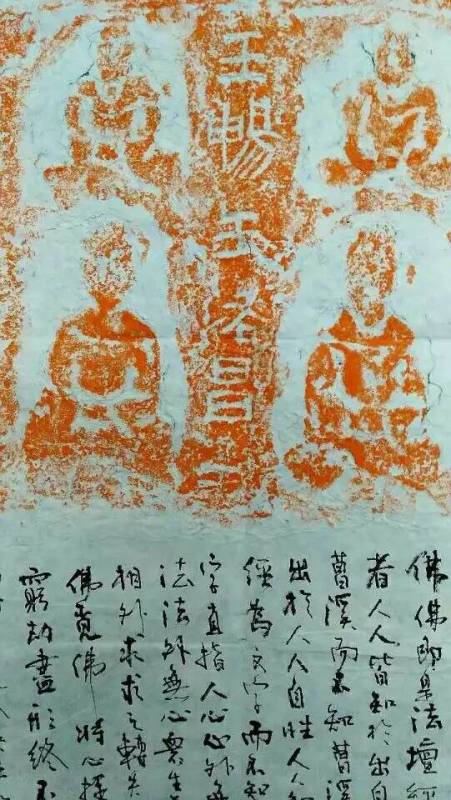 王暢王昌王
佛佛即是法壇經
者人人皆知於出自
曹溪而不知曹溪
出於人人自性人人
經為文字而不知
字直指人心心外無
法法外無心眾生
相外求求之轉失
佛覓佛將心捉
窮劫盡形終不